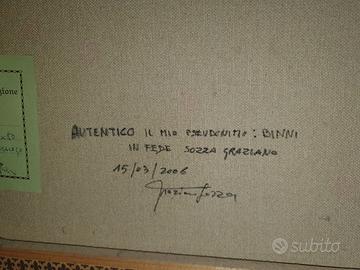 gione
AUTENTICO IL MIO PSEUDONIMO: BINNI
IN FEDE SOZZA GRAZIANO
15/03/2006
Graziano Sozza
subito